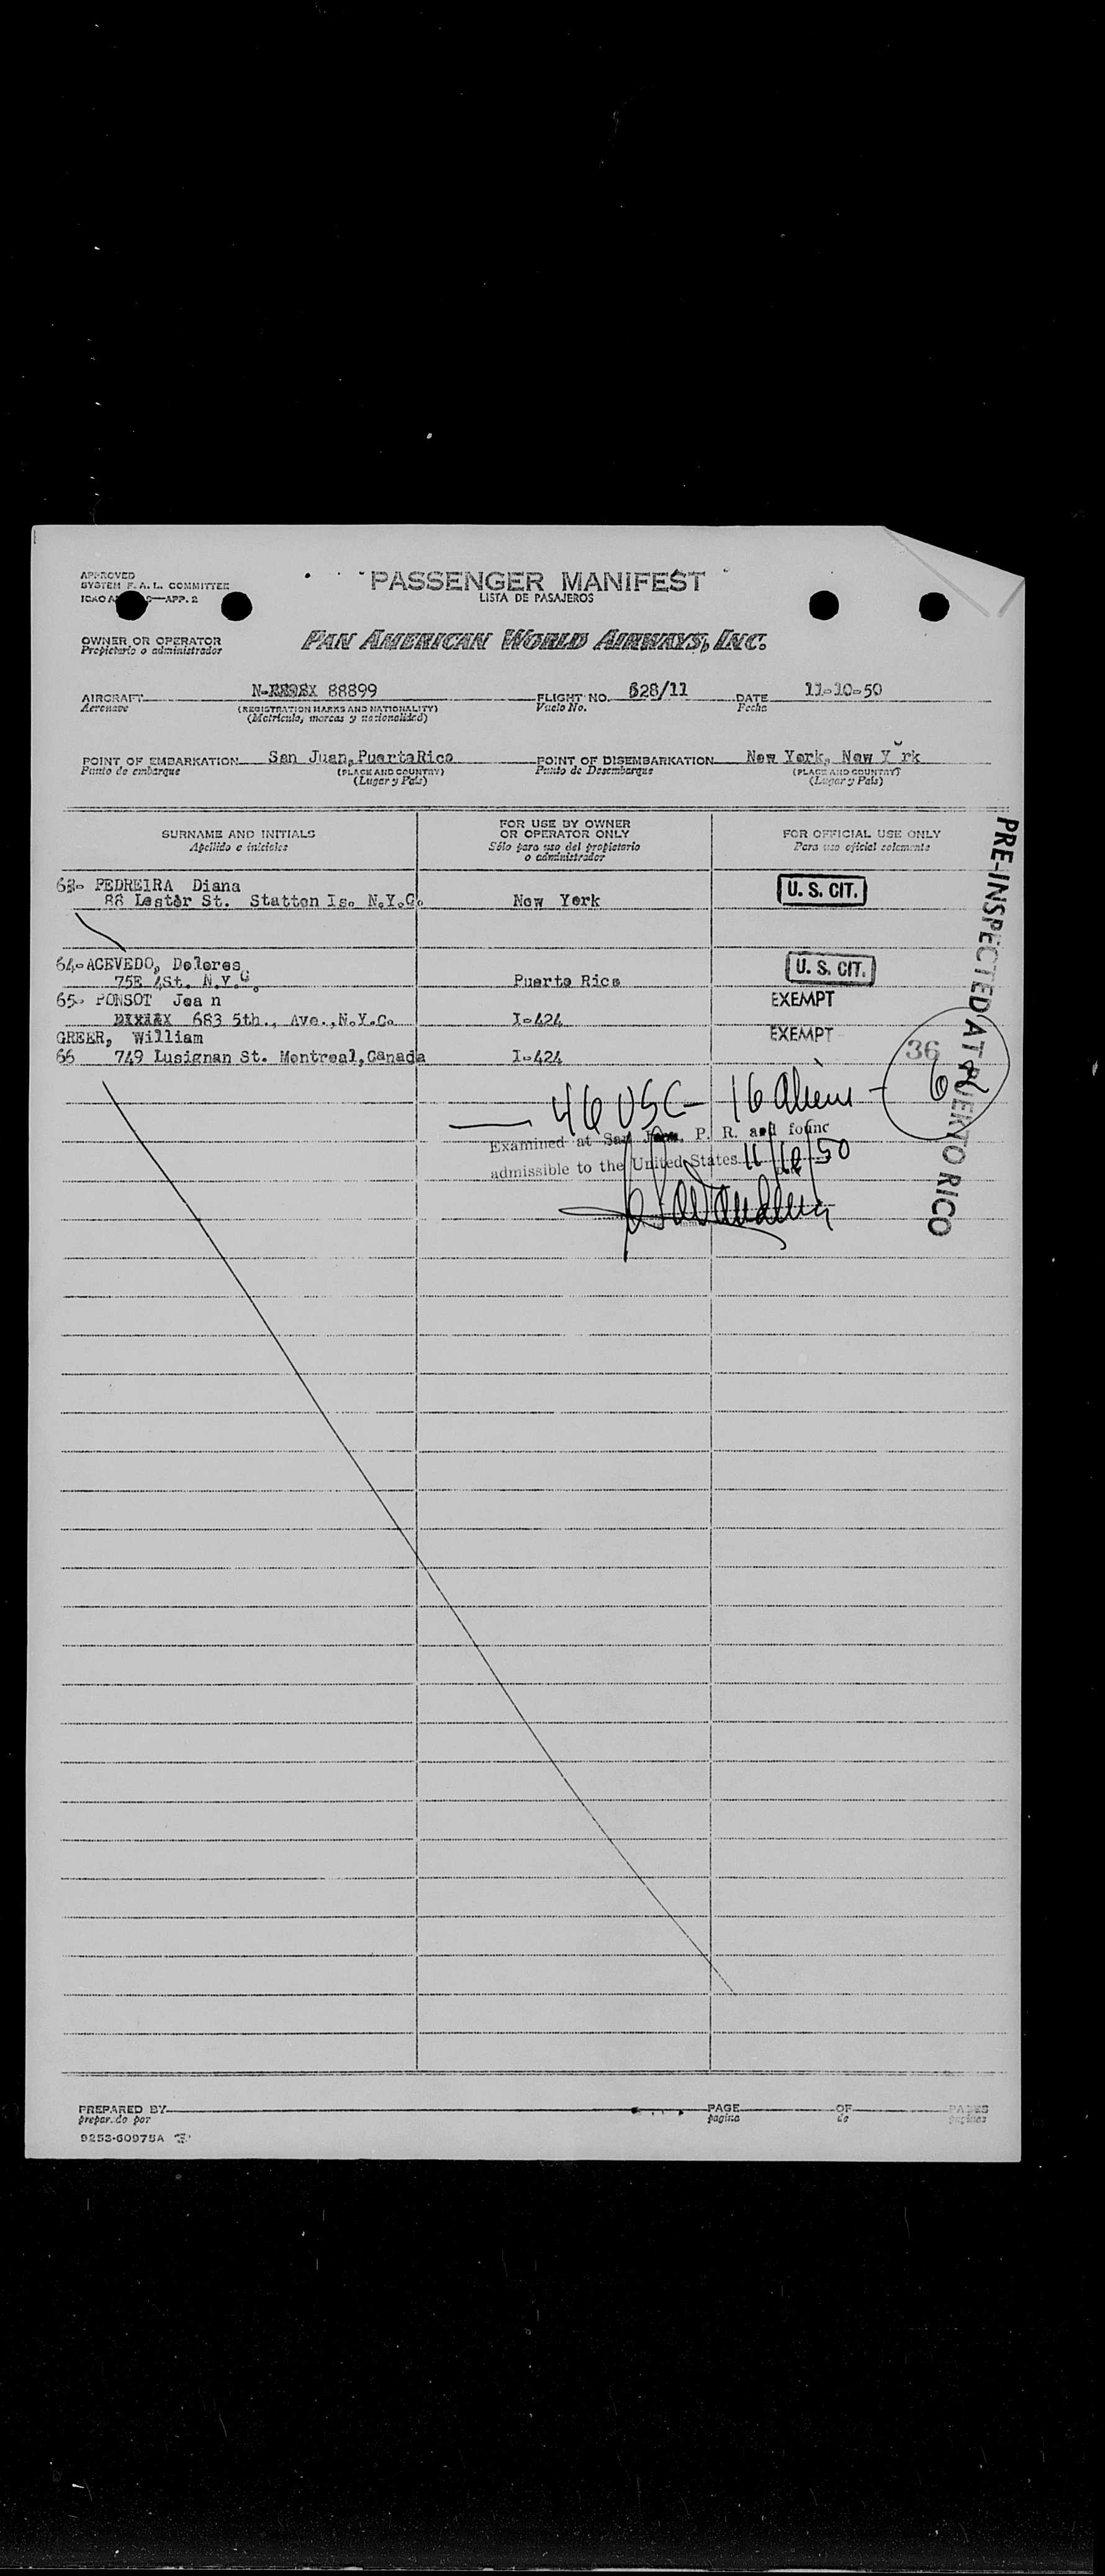 APPROVED
SYSTEM F. A. L. COMMITTEE
APP. 2
PASSENGER MANIFEST
LISTA DE PASAJEROS
OWNER OR OPERATOR
Propietario o administrador
PAN AMERICAN WORLD AIRWAYS, INC.
AIRCRAFT N- 88899 FLIGHT NO. 628/11 DATE 11-10-50
Aeronave (REGISTRATION MARKS AND NATIONALITY) Vuelo No. Fecha
(Matricula, marcas y nacionalidad)
POINT OF EMBARKATION San Juan, PuertaRico POINT OF DISEMBARKATION New York, New Y rk
Punto de embarque (PLACE AND COUNTRY) Punto de Desembarque (PLACE AND COUNTRY)
(Lugar y Pais) (Lugar y Pais)
SURNAME AND INITIALS FOR USE BY OWNER OR OPERATOR ONLY FOR OFFICIAL USE ONLY
Apellido e iniciales Sólo para uso del propietario o administrador Para uso oficial solamente
63- PEDREIRA Diana U. S. CIT.
88 Lester St. Statton Is. N.Y.C. New York
64-ACEVEDO, Dolores U. S. CIT.
75E 4St. N.Y.C. Puerto Rico
65- PONSOT Jea n EXEMPT
683 5th., Ave.,N.Y.C. I-424
GREER, William EXEMPT
66 749 Lusignan St. Montreal,Canada I-424
36
46 USC - 16 aliens - 62
Examined at San Juan, P. R. and found
admissible to the United States 11/10/50
PRE-INSPECTED AT PUERTO RICO
PREPARED BY PAGE OF PAGES
preparado por pagina de paginas
9253-60975A